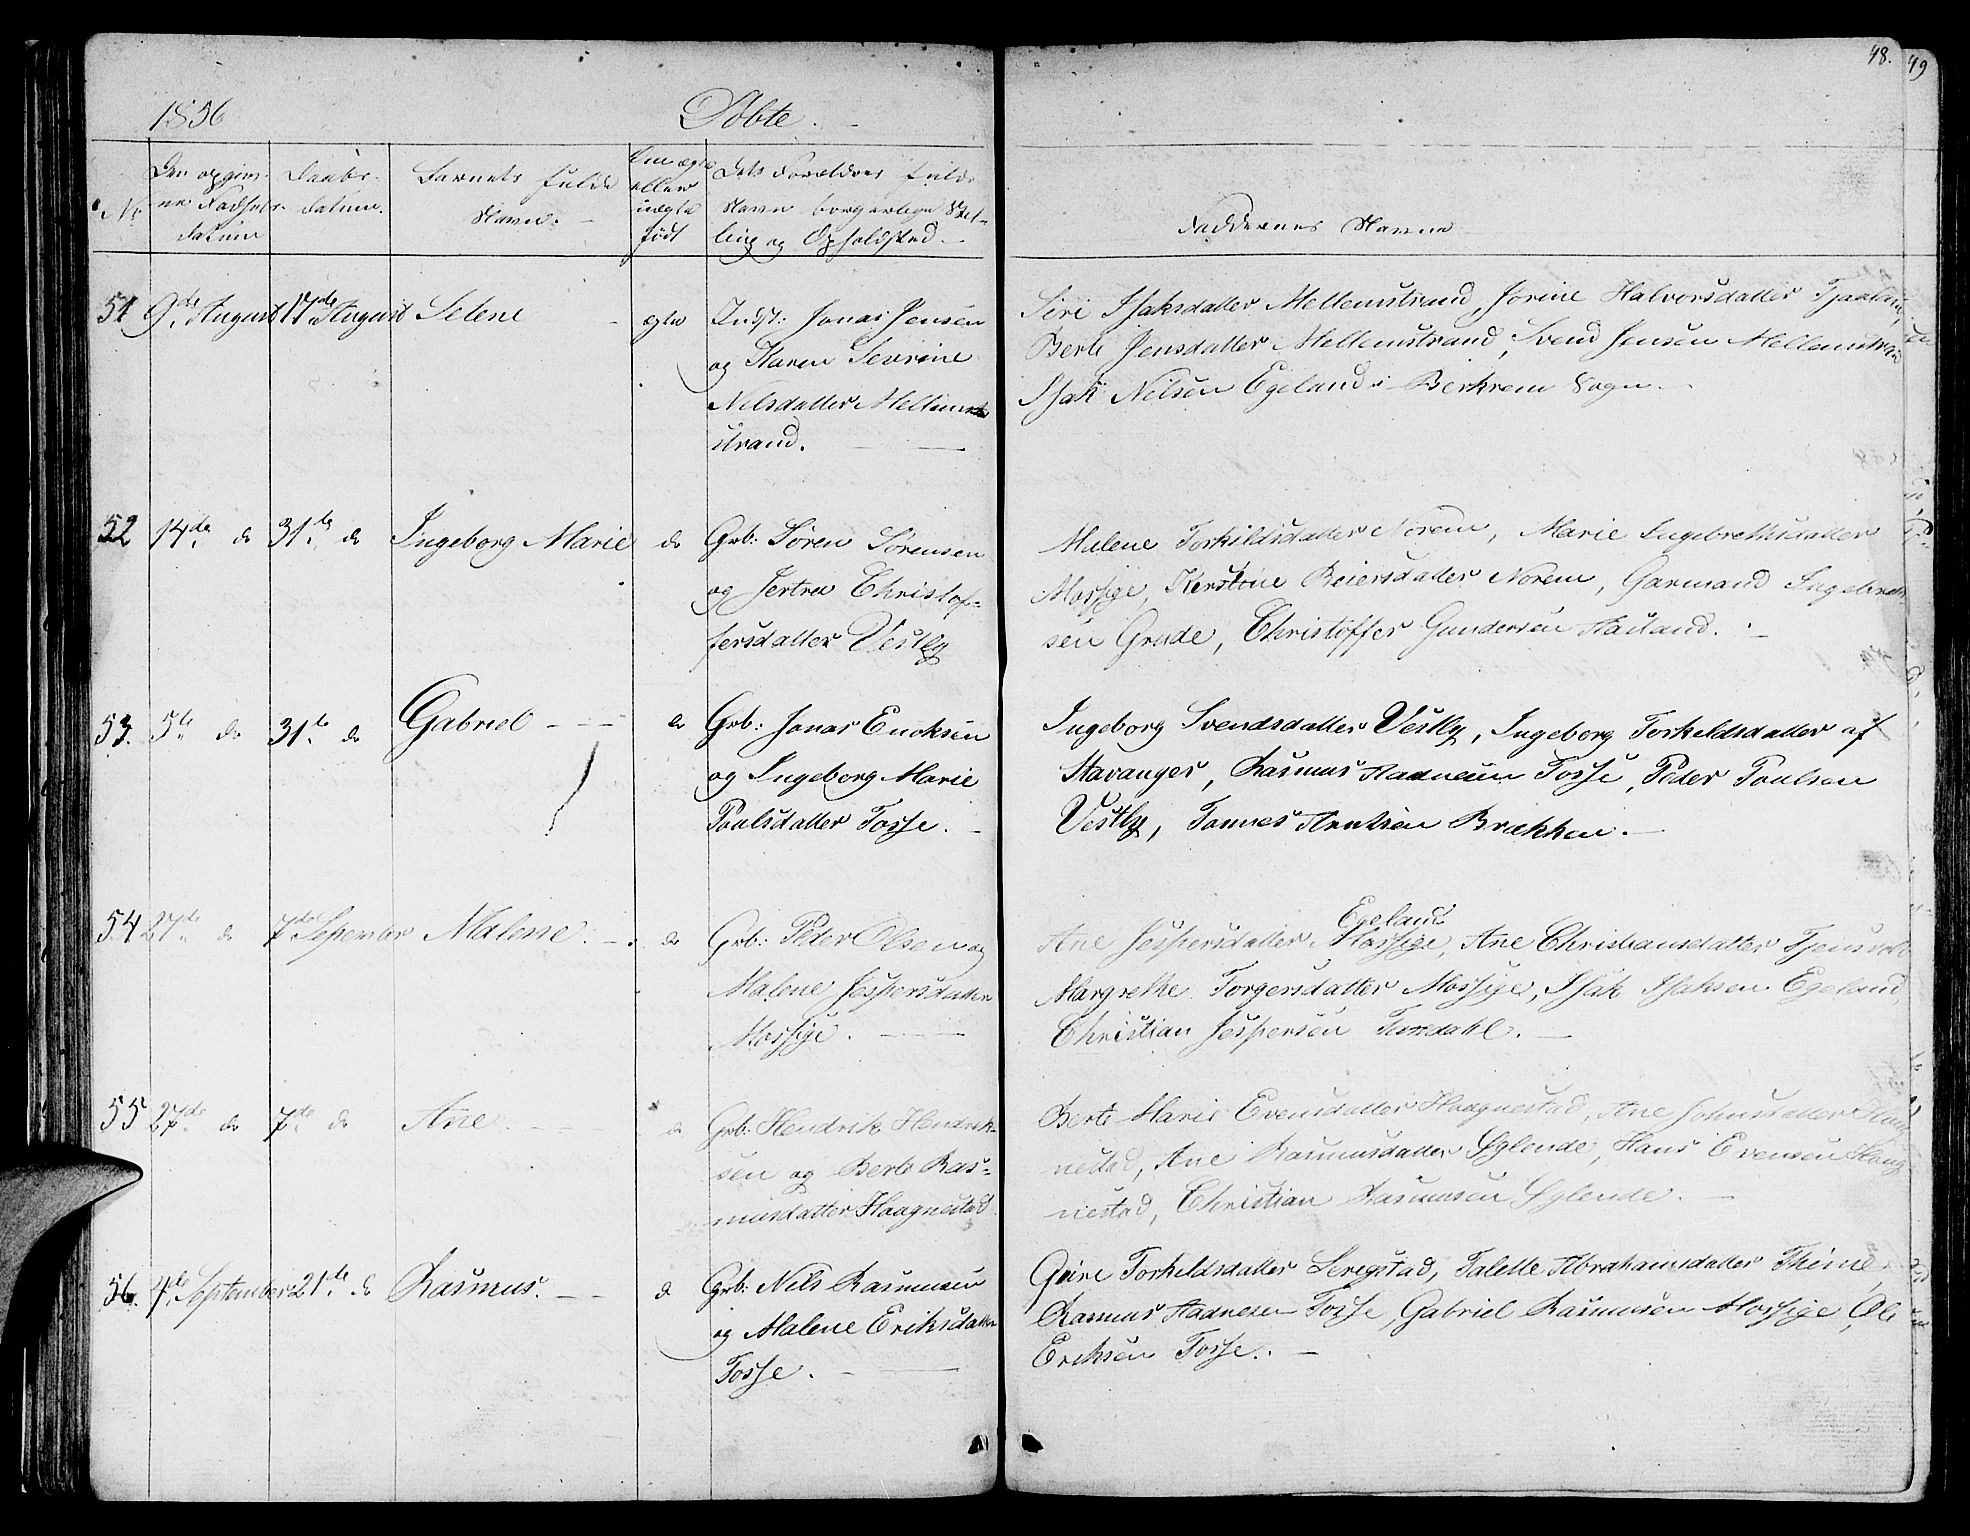 48.
49
1856
Døbte.
No
Den opgiv-
ne Fødsels-
datum
Daabs-
datum.
Barnets fulde
Navn.
Om ægte
eller
uægte
født
Dets Forældres fulde
Navn borgerlige Stil-
ling og Opholdsted.
Faddernes Navne
51 9de August 17de August Selene ægte Indst: Jonas Jensen
og Karen Severine
Nilsdatter Mellem
strand.
Siri Isaksdatter Mellemstrand, Jorine Halvorsdatter
Berte Jensdatter Mellemstrand, Svend Jensen Mellemstrand
Isak Nilsen Egeland i Berkrem Sogn.
52 14de do 31te do Ingeborg Marie do Grb: Sören Sörensen
og Jertru Christof-
fersdatter Vestly
Malene Torkildsdatter Norem, Marie Ingebrethsdatter
Mossige, Kerstine Reiersdatter Norem, Garmand Ingebreth-
sen Grude, Christoffer Gundersen Haaland.
53. 5te do 31te do Gabriel do Grb: Jonas Enoksen
og Ingeborg Marie
Poulsdatter Tosse.
Ingeborg Svendsdatter Vestly, Ingeborg Torkeldsdatter af
Stavanger, Rasmus Aadnesen Tosse, Peder Poulsen
Vestly, Tönnes Arntsen Brækken.
54 27de do 7de September Malene. do Grb: Peter Olsen og
Malene Jespersdatter
Mossige.
Egeland
Ane Jespersdatter Mossige, Ane Christiansdatter Tjensvold
Margrethe Torgersdatter Mossige, Isak Isaksen Egeland
Christian Jespersen
55 27de do 7de do Ane do Grb: Hendrik Hendrik-
sen og Berte Ras-
musdatter Haagnestad
Berte Marie Evensdatter Haagnestad, Ane Johnsdatter Haag
nestad, Ane Rasmusdatter Gylende, Hans Evensen Haag
nestad, Christian Rasmusen Gylende.
56. 4de September 21de do Rasmus. do Grb: Nils Rasmusen
og Malene Eriksdatter
Tosse.
Torkildsdatter Serigstad, Talette Abrahamsdatter Thime,
Rasmus Aadnesen Tosse, Gabriel Rasmusen Mossige, Ole
Eriksen Tosse.